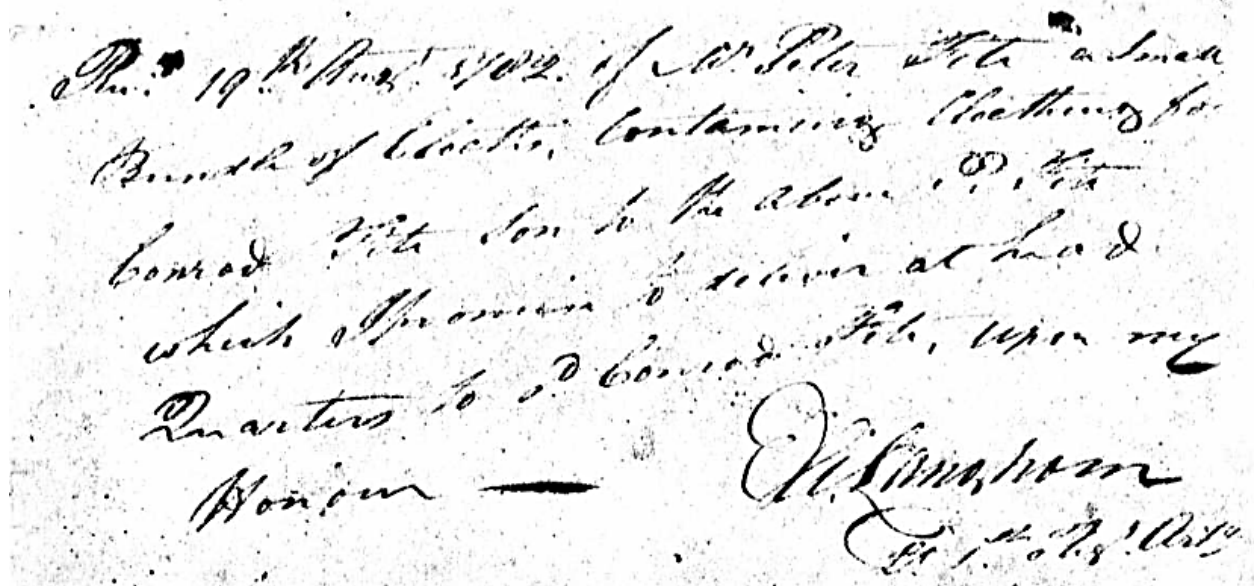 Recd. 19th Augt. 1782. of Mr. Peter Fite a Small
Bundle of Cloaths, Containing Cloathing for
Conrad Fite Son to the above P. Fite
which I promise to deliver at head
Quarters to sd. Conrad Fite, upon my
Honour —
Langhom
Lt. 1st Regt. Arty